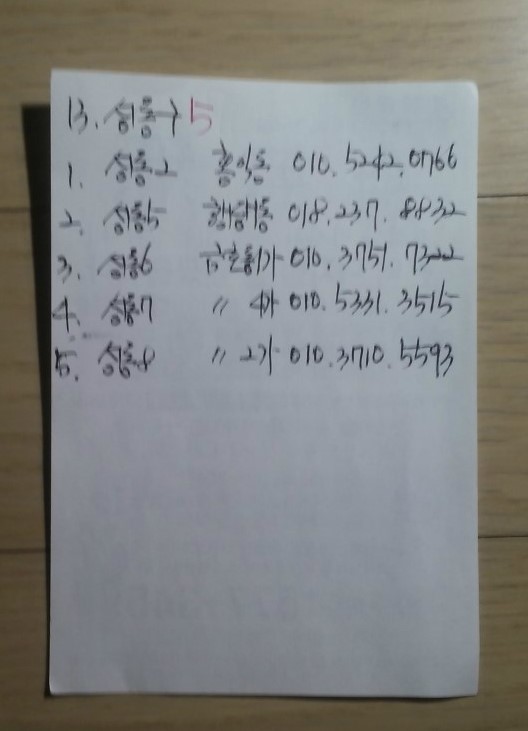 13. 성동구 5
1. 성동2 홍익동 010.5242.0766
2. 성동5 행당동 018.237.8832
3. 성동6 금호동1가 010.3751.7322
4. 성동7 〃 4가 010.5331.3515
5. 성동8 〃 2가 010.3710.5593